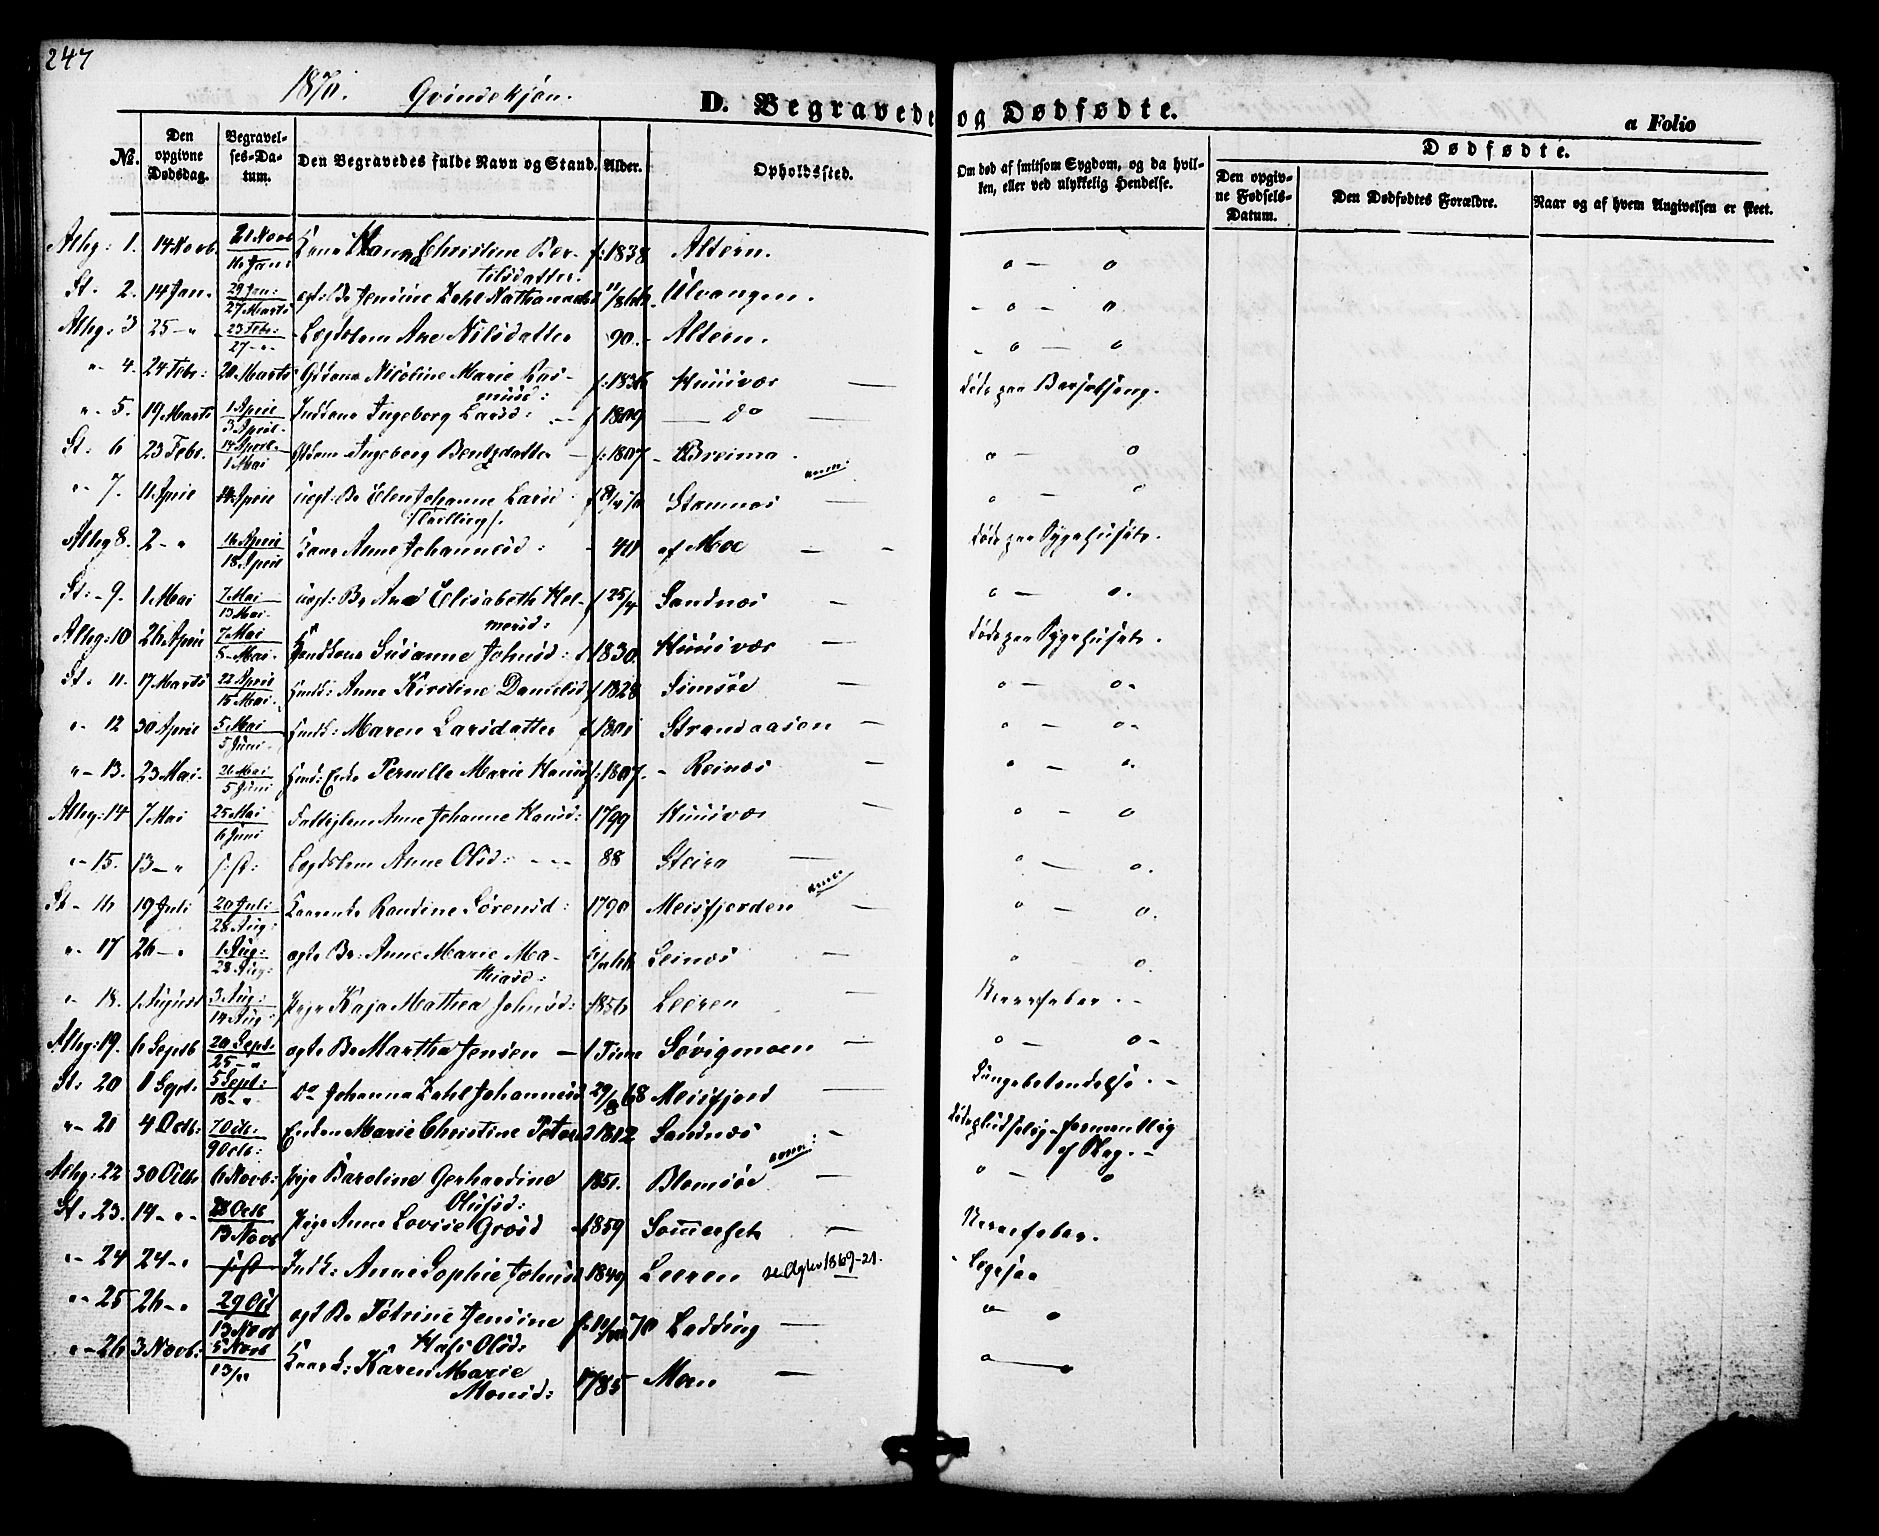 247
1870. Qvindekjøn.
D. Begravede og Dødfødte.
a Folio
No. Den opgivne Dødsdag. Begravelses-Datum. Den Begravedes fulde Navn og Stand. Alder. Opholdssted. Om død af smitsom Sygdom, og da hvilken, eller ved ulykkelig Hendelse. Dødfødte. Den opgivne Fødsels-Datum. Den Dødfødtes Forældre. Naar og af hvem Angivelsen er skeet.
Alhg: 1. 14 Novb. 21 Novb 16 Jan: Kone Hanna Christine Bertilsdatter. f: 1838 Altern. o — o
St. 2. 14 Jan. 29 Jan: 27 Marts ogt: Br Jensine Zahl Nathanaels Ulvangen. - o - o
Alhg: 3 25 - " 23 Febr: 27 - " Lægdslem Ane Nilsdatter 90. - Altern. o — o
" 4. 24 Febr: 20 Marts Nicoline Marie Rasmusd: f. 1836 Husvær — Døde paa Barselseng.
" 5. 19 Marts 1 April 3 April. Ingeborg Larsd: f 1809 — do —
St: 6 23 Febr. 14 April. 1 Mai Ingeborg Bentzdatter f. 1807 - Breimo. o — o
" 7. 11 April 14 April uegt: Br Elen Johanne Larsd: /:Tvilling/: Stamnes — o — o
Alhg 8. 2 - " 16 April 18 April Anne Johannesd: - 40 af Moe — - Døde paa Sygehuset.
St: - 9. 1 Mai 7 Mai 13 Mai. uegt: Br Ane Elisabeth Helmersd: f 25/4 Sandnes — o — o.
Alhg: 10 26 April 7 Mai 8 - Mai. Susanne Johnsd: f 1830. Husvær — Døde paa Sygehuset.
St. 11. 17 Marts 22 April 15 Mai. Anne Kirstine Danielsd f 1828 Simsøe — o — o -
" 12 30 April 5 Mai 5 Juni. Maren Larsdatter f 1801 Strandaasen — o — o -
" - 13. 23 Mai. 26 Mai 5 Juni Enke Pernille Marie Hansd f. 1807. - Reines — o — o.
Alhg: 14 7 Mai 25 Mai 6 Juni Anne Johanne Hansd: 1799 Husvær — o — o
" - 15. 13 - " Lægdslem Anne Olsd: - - - 88 Steiro — o — o.
St - 16 19 Juli 20 Juli 28 Aug: Randine Sørensd: 1790 Meisfjorden — o — o.
" 17 26 - " 1 Aug: 28 Aug: ogte Br: Anne Marie Mathiasd: Leines — o — o.
" 18. 1 August 3 Aug: 14 Aug: Pige Kaja Mathea Johnsd: 1856 Leeren — Nervefeber. -
Alhg: 19. 6 Septb 20 Sept. 25 - " ogte Br Martha Jensen — 1 Time Søvigmoen — o — o -
St: 20 1 Sept. 5 Sept: 18 - " Do Johanna Zahl Johannesd 29/8 68 Meisfjord — Lungebetendelse. -
" - 21 4 Octb: 7 Octb. 9 Octb: Enken Marie Christine Peters 1812 Sandnes - Døde pludselig - formentlig af Slag. -
Alhg: 22 30 Octb 6 Novb: Pige Caroline Gerhardine Olufsd: 1851. Blomsøe — o — o
St. 23. 14 - " - 28 Octb 13 Novb Pige Anne Lovise Grosd 1859 Sommerseth — Nervefeber.
" - 24 24 - " Anne Sophie Johnsd 1849 Leeren 1869 - 21.
" - 25 26 - " 29 Oct 13 Novb ogt Br Petrine Jensine Olsd: 70 Ladding — o o
" - 26 3 Novb: 5 Novb 13/11 Karen Marie Monsd: 1785 Moen — o — o